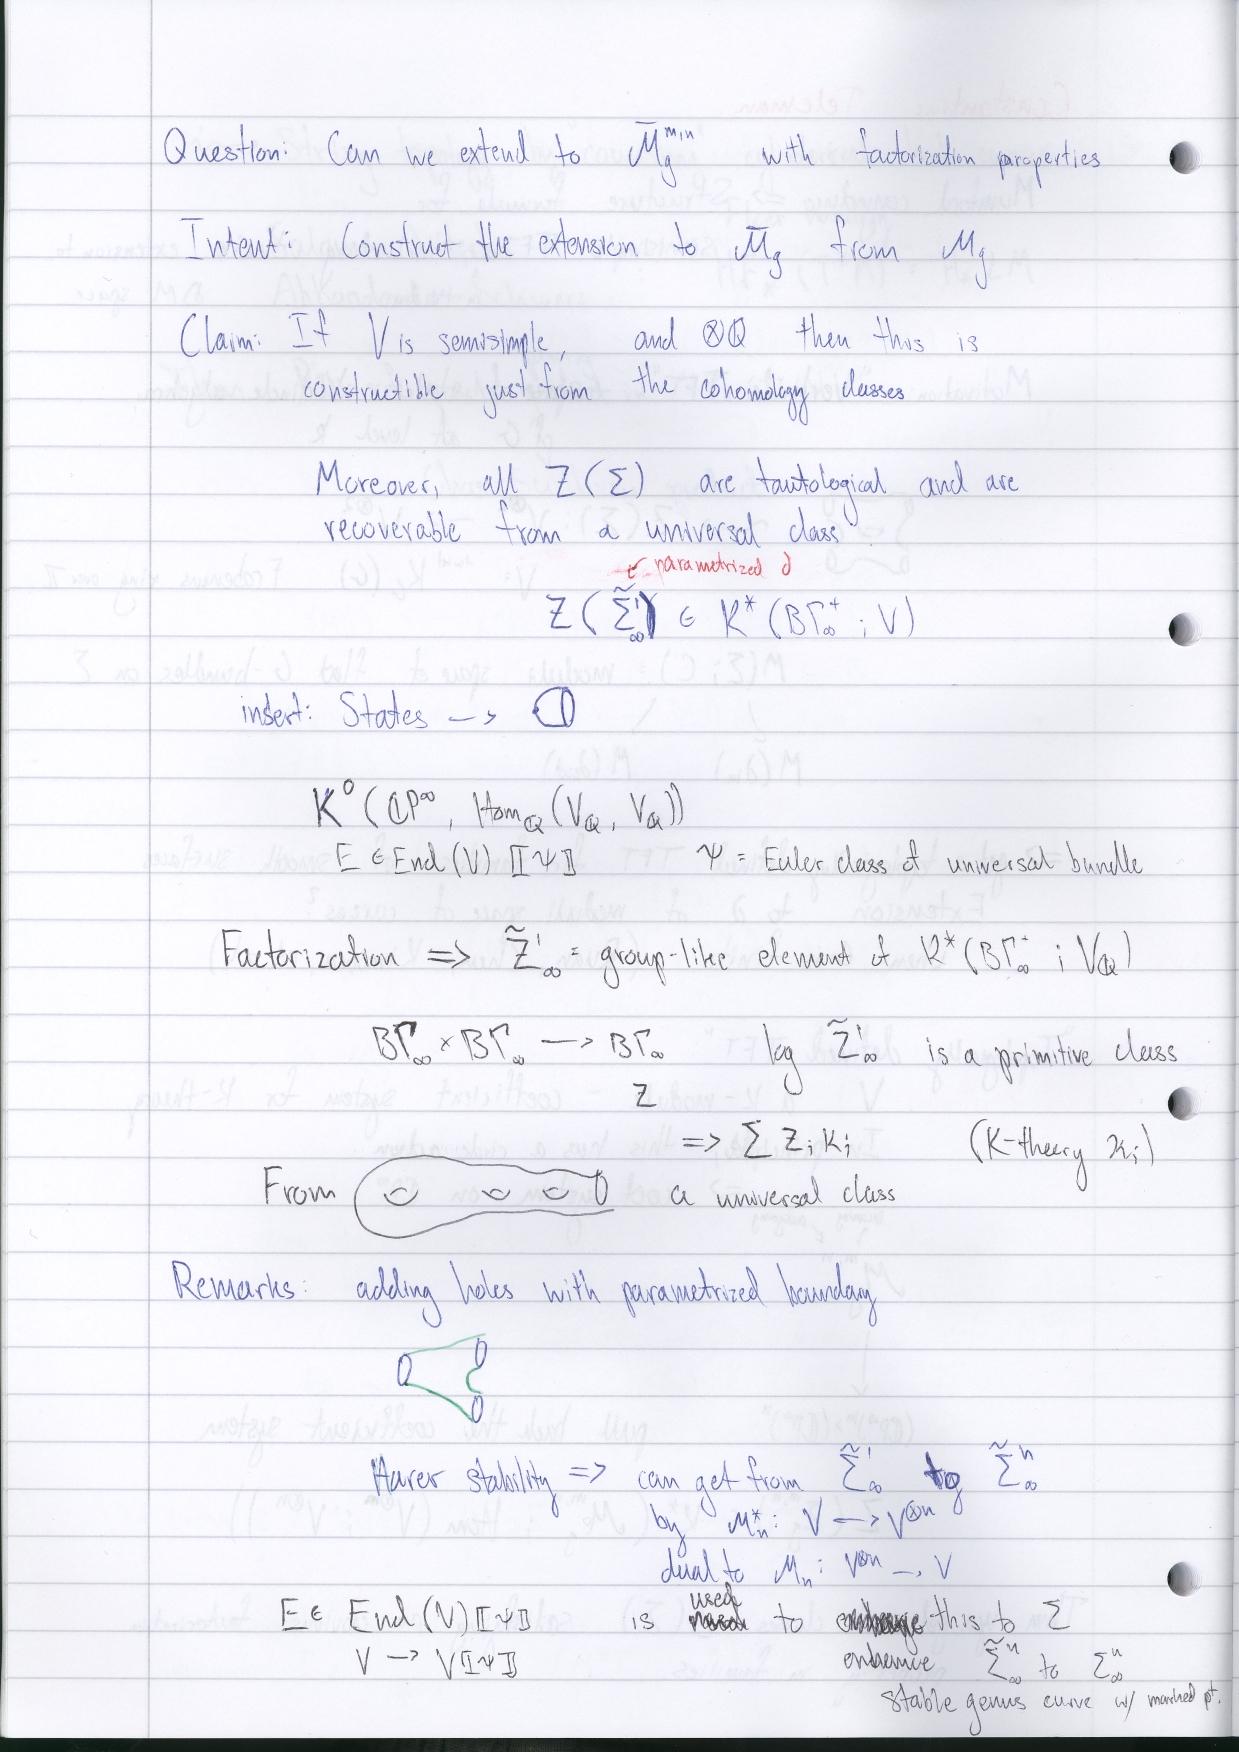 Question: Can we extend to M̄_g^min with factorization properties
Intent: Construct the extension to M̄_g from M_g
Claim: If V is semisimple, and ⊗Q then this is
constructible just from the cohomology classes
Moreover, all Z(Σ) are tautological and are
recoverable from a universal class
parametrized ∂
Z(Σ̃^1_∞) ∈ K*(BΓ_∞^+ ; V)
insert: States -->
K^0(CP^∞, Hom_Q(V_Q, V_Q))
E ∈ End(V)⟦Ψ⟧ Ψ = Euler class of universal bundle
Factorization => Z̃^1_∞ = group-like element of K*(BΓ_∞^+ ; V_Q)
BΓ_∞ × BΓ_∞ → BΓ_∞ log Z̃^1_∞ is a primitive class
Z
=> Σ Z_i κ_i (K-theory κ_i)
From a universal class
Remarks: adding holes with parametrized boundary
Harer stability => can get from Σ̃^1_∞ to Σ̃^n_∞
by M_n^*: V → V^⊗n
dual to M_n: V^⊗n → V
E ∈ End(V)⟦Ψ⟧ is used to this to Σ
V → V⟦Ψ⟧ enhance Σ̃^n_∞ to Σ^n_∞
stable genus curve w/ marked pt.